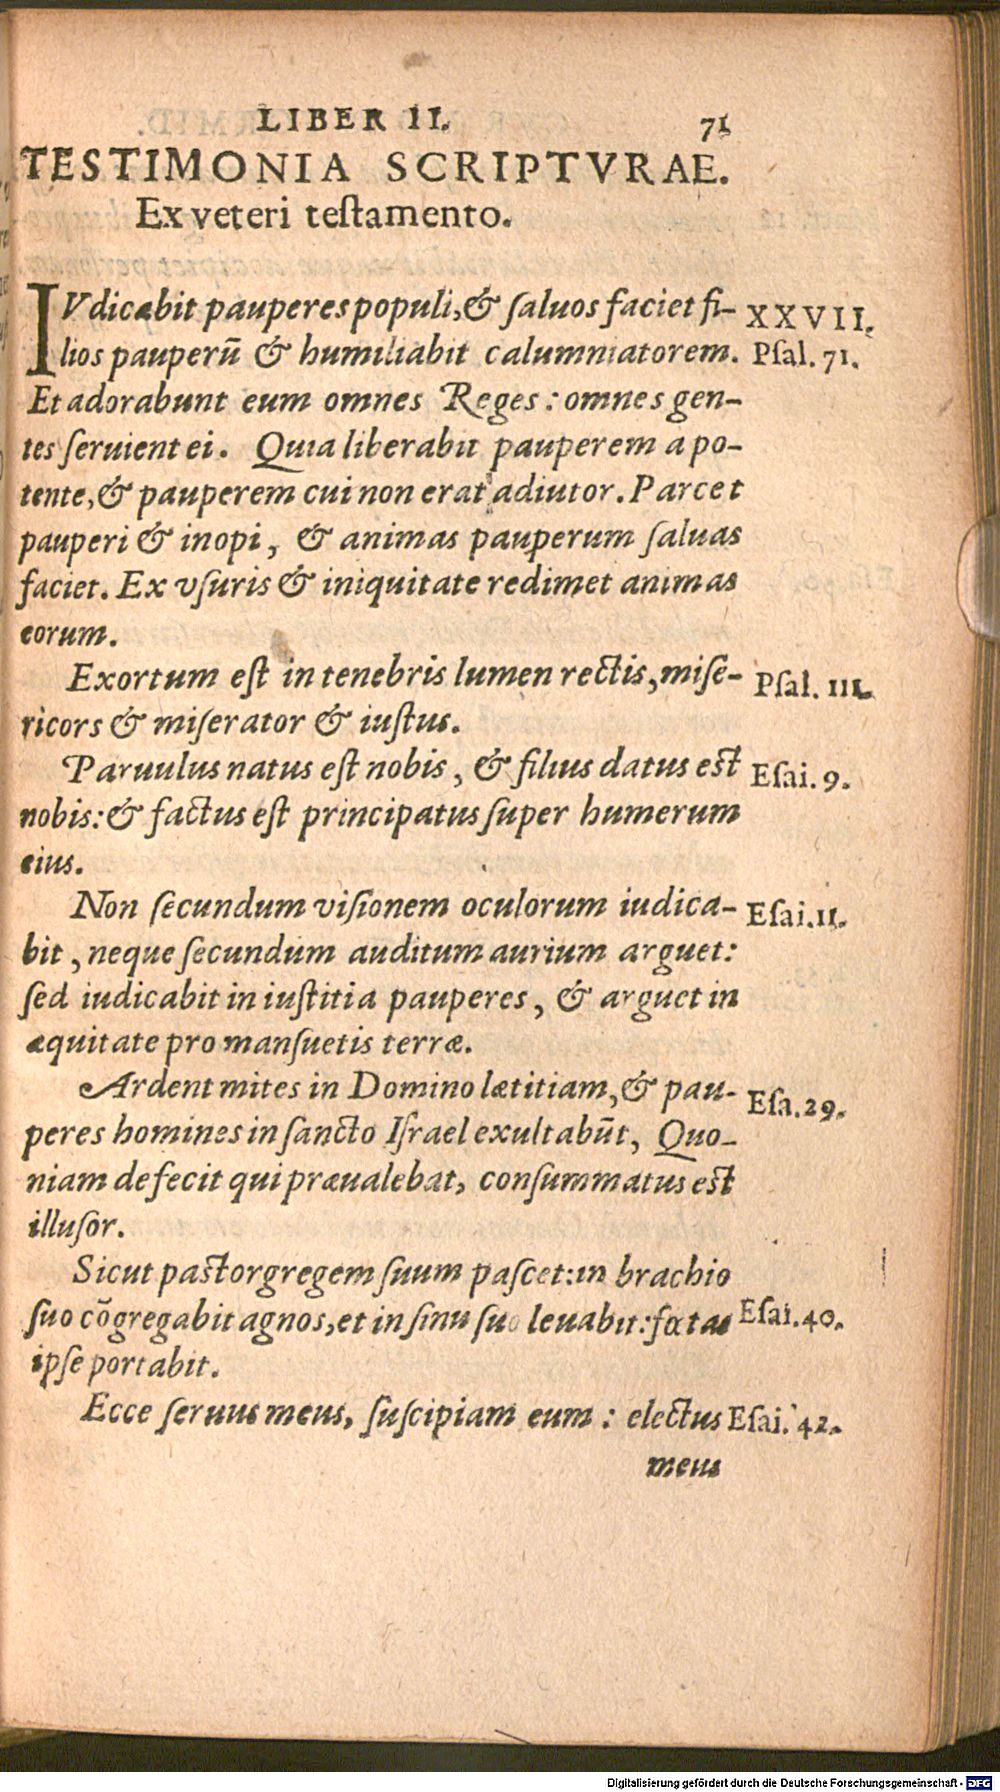 LIBER II. 71
TESTIMONIA SCRIPTVRAE.
Ex veteri teſtamento.
IVdicabit pauperes populi, & ſaluos faciet fi- XXVII.
lios pauperū & humiliabit calumniatorem. Pſal. 71.
Et adorabunt eum omnes Reges: omnes gen-
tes ſeruient ei. Quia liberabit pauperem a po-
tente, & pauperem cui non erat adiutor. Parcet
pauperi & inopi, & animas pauperum ſaluas
faciet. Ex vſuris & iniquitate redimet animas
eorum.
Exortum eſt in tenebris lumen rectis, miſe- Pſal. 111.
ricors & miſerator & iuſtus.
Paruulus natus eſt nobis, & filius datus eſt Eſai. 9.
nobis: & factus eſt principatus ſuper humerum
eius.
Non ſecundum viſionem oculorum iudica- Eſai. 11.
bit, neque ſecundum auditum aurium arguet:
ſed iudicabit in iuſtitia pauperes, & arguet in
æquitate pro manſuetis terræ.
Ardent mites in Domino lætitiam, & pau- Eſa. 29.
peres homines in ſancto Iſrael exultabūt, Quo-
niam defecit qui præualebat, conſummatus eſt
illuſor.
Sicut paſtor gregem ſuum paſcet: in brachio
ſuo cōgregabit agnos, et in ſinu ſuo leuabit: fœtas Eſai. 40.
ipſe portabit.
Ecce ſeruus meus, ſuſcipiam eum: electus Eſai. 42.
meus
Digitalisierung gefördert durch die Deutsche Forschungsgemeinschaft - DFG